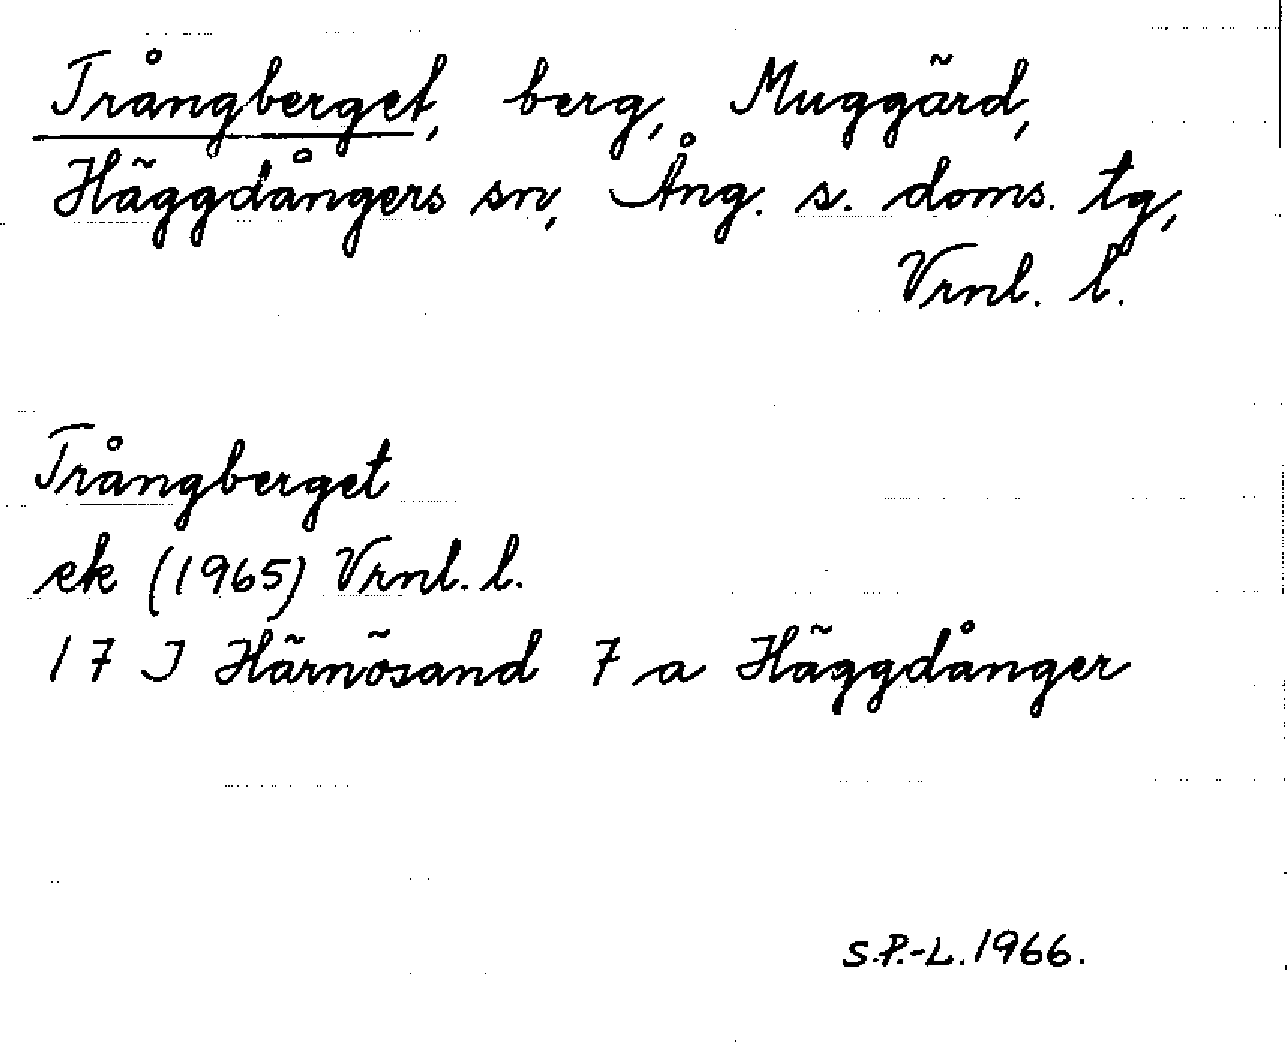 Trångberget, berg, Muggärd,
Häggdångers sn, Ång. s. doms. tg,
Vrnl. l.
Trångberget
ek (1965) Vrnl. l.
17 J Härnösand 7 a Häggdånger
S.P.-L. 1966.